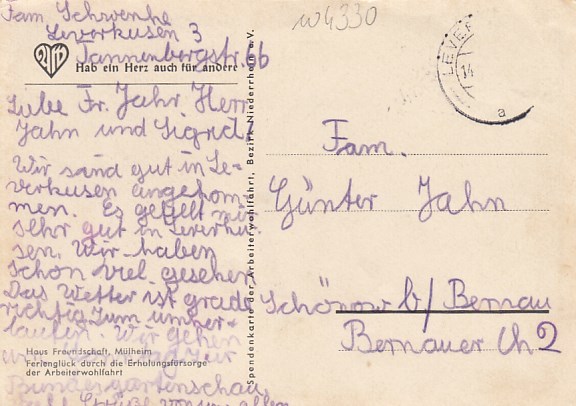 Fam Schwenke
Leverkusen 3
Tannenbergstr. 66
Hab ein Herz auch für andere
Liebe Fr. Jahr, Herr
Jahn und Sigrid!
Wir sind gut in Le-
verkusen angekom-
men. Es gefällt mir
sehr gut in Leverku
sen. Wir haben
schon viel gesehen
Das Wetter ist grade
richtig zum umher-
laufen. Wir gehen
zur
Haus Freundschaft, Mülheim
Ferienglück durch die Erholungsfürsorge
der Arbeiterwohlfahrt
Bundesgartenschau.
Grüße von uns allen
Spendenkarte der Arbeiterwohlfahrt, Bezirk Niederrhein e.V.
w4330
LEVER
14
a
Fam.
Günter Jahn
Schönow b/ Bernau
Bernauer Ch 2